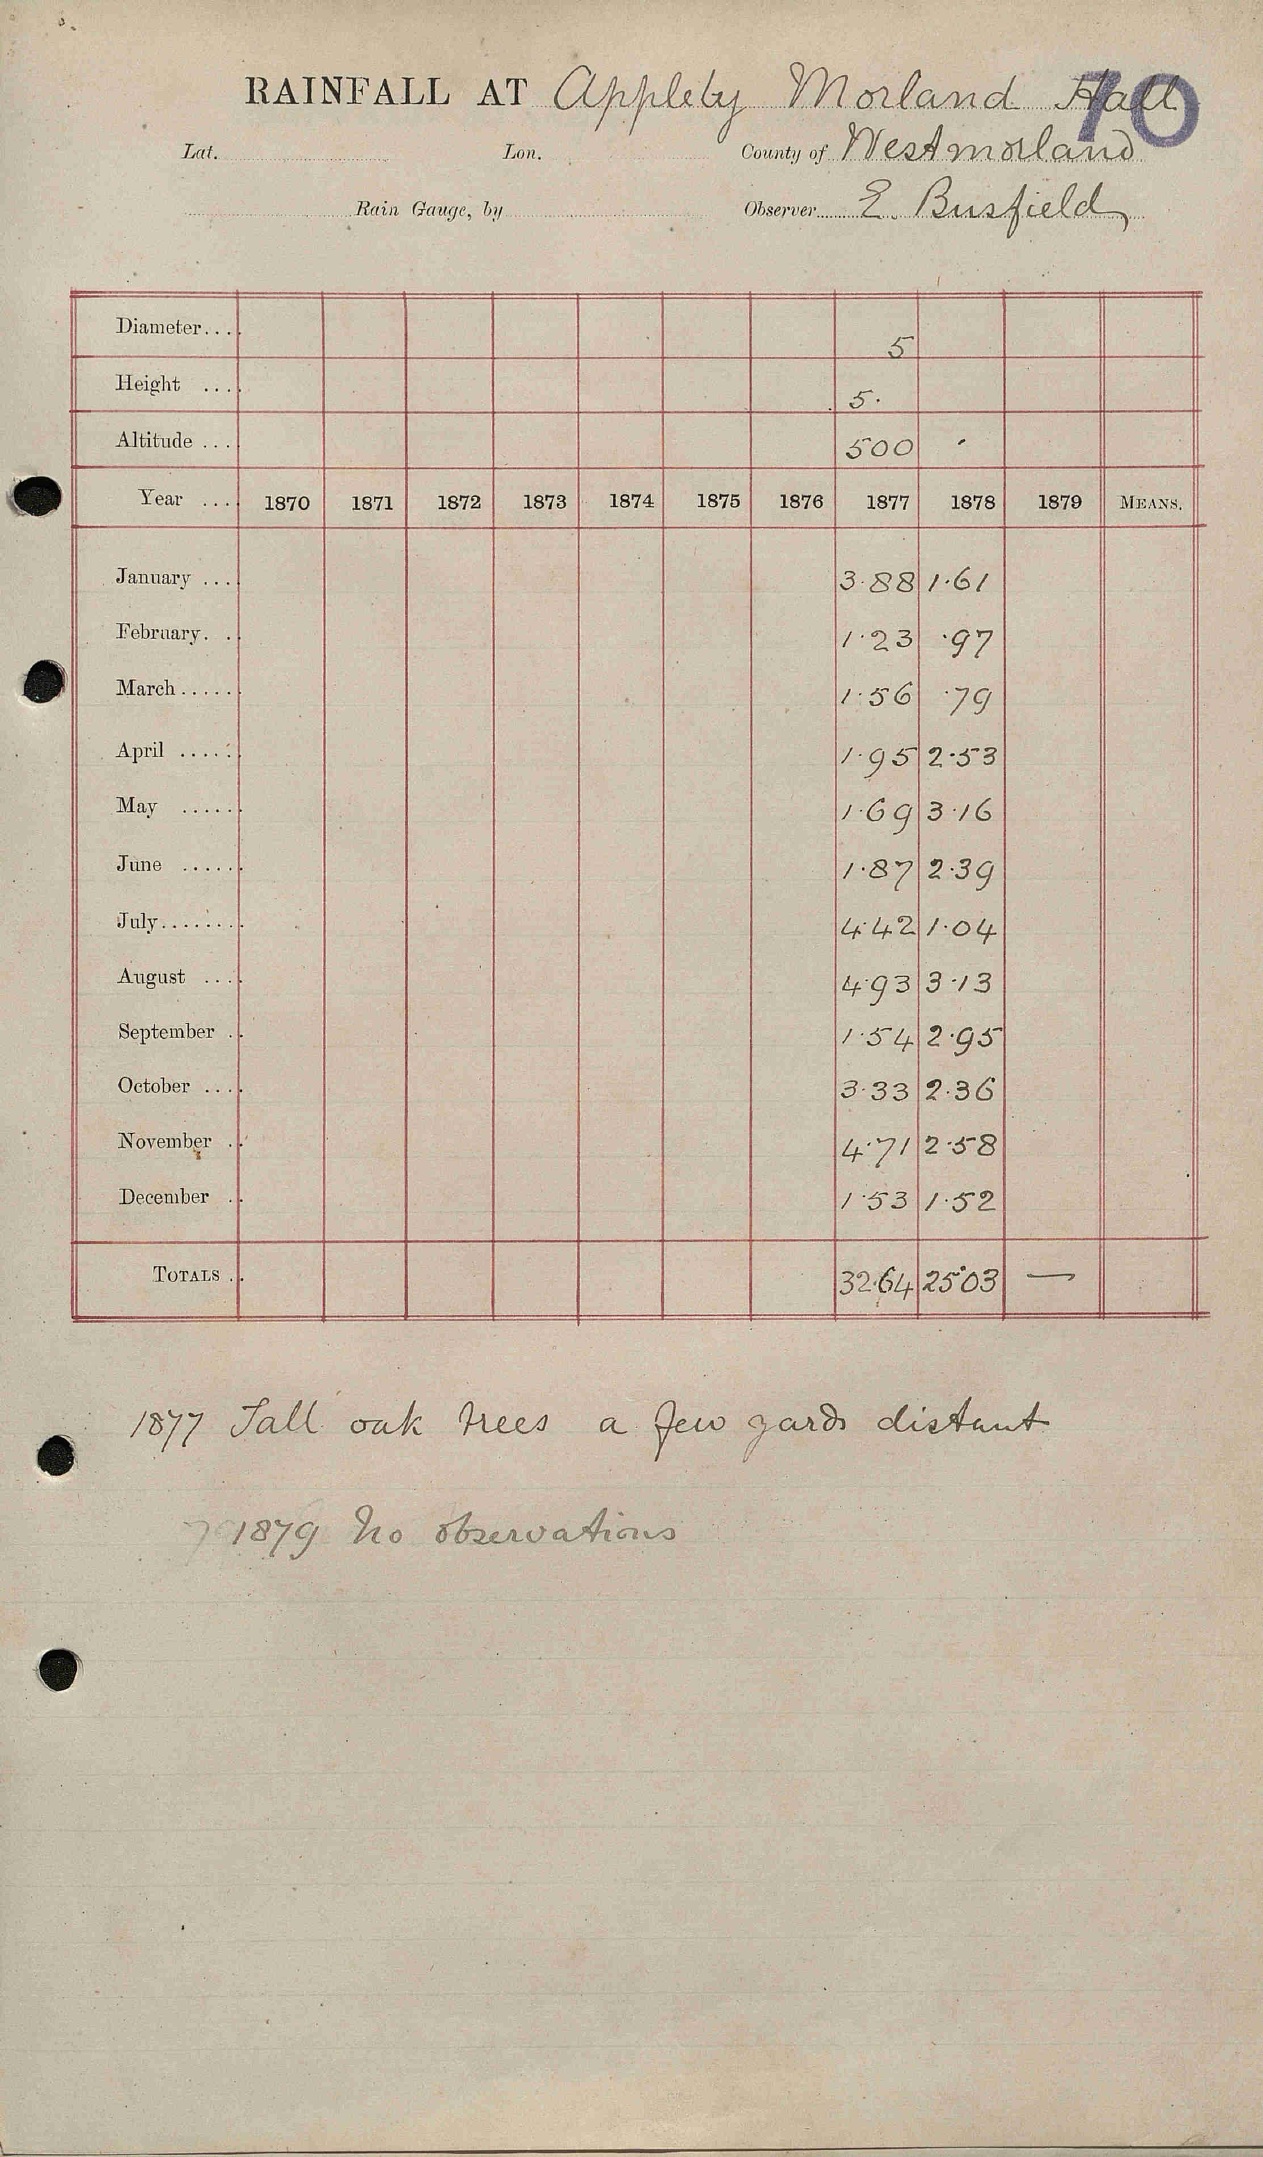 RAINFALL AT Appleby Morland Hall
70
Lat. Lon. County of Westmorland
Rain Gauge, by Observer E. Busfield
Diameter.... 5
Height .... 5.
Altitude ... 500
Year .... 1870 1871 1872 1873 1874 1875 1876 1877 1878 1879 MEANS.
January ... 3.88 1.61
February. . 1.23 .97
March...... 1.56 .79
April ..... 1.95 2.53
May ...... 1.69 3.16
June ...... 1.87 2.39
July........ 4.42 1.04
August .... 4.93 3.13
September .. 1.54 2.95
October .... 3.33 2.36
November .. 4.71 2.58
December .. 1.53 1.52
TOTALS .. 32.64 25.03 —
1877 Tall oak trees a few yards distant
1879 No observations